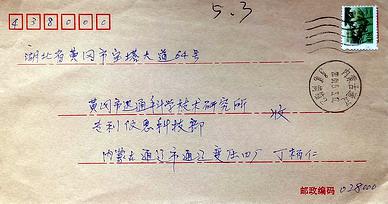 438000
5.3
湖北省黄冈市宝塔大道64号
黄冈市迅通科学技术研究所 收
专利信息科技部
内蒙古通辽市通辽 丁柄仁
邮政编码 028000